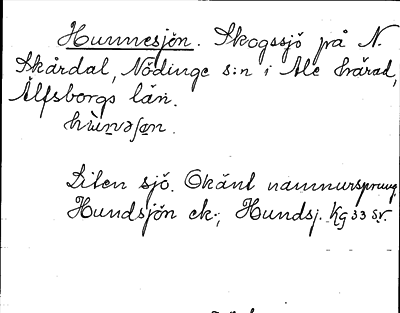 Hunnesjön. Skogssjö på N.
Skårdal, Nödinge s:n i Ale härad,
Älfsborgs län.
Liten sjö. Okänt namnursprung.
Hundsjön ek.; Hundsj. Kg 33 sv.